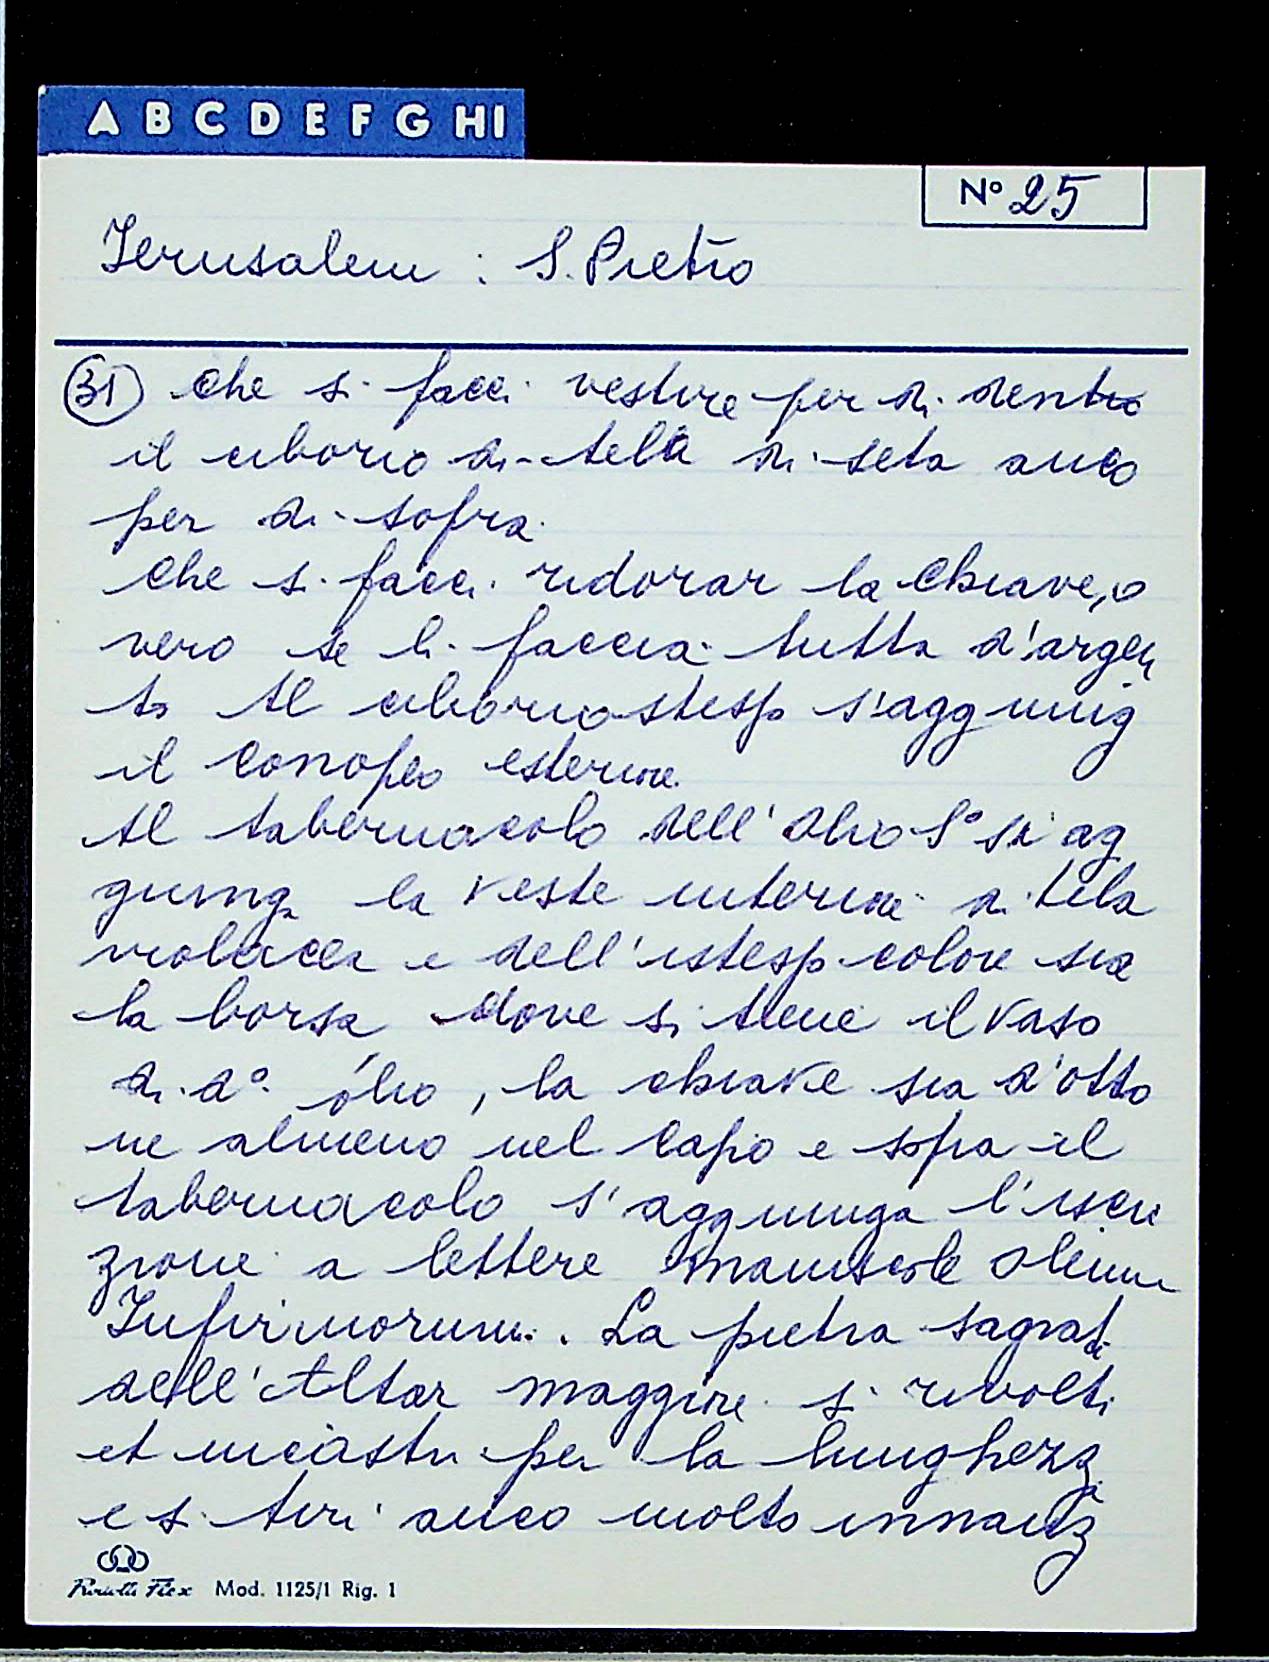 A B C D E F G H I
Nº 25
Jerusalem : S. Pietro
31 Che si facci vestire per di dentro
il ciborio di tela di seta anco
per di sopra.
Che si facci ridorar la chiave, o
vero se li faccia tutta d'argen
to Al ciborio stesso s'aggiung
il conopeo esteriore.
Al tabernacolo dell'Olio Sº si ag
giunga la veste interiore di tela
violacea e dell'istesso colore sia
la borsa dove si tiene il vaso
di dº olio, la chiave sia d'otto
ne almeno nel capo e sopra il
tabernacolo s'aggiunga l'iscri
zione a lettere maiuscole Oleum
Infirmorum. La pietra sagrata
dell'Altar maggiore si rivolti
et incastri per la lunghezza
e si tiri anco molto innanz
Mod. 1125/1 Rig. 1